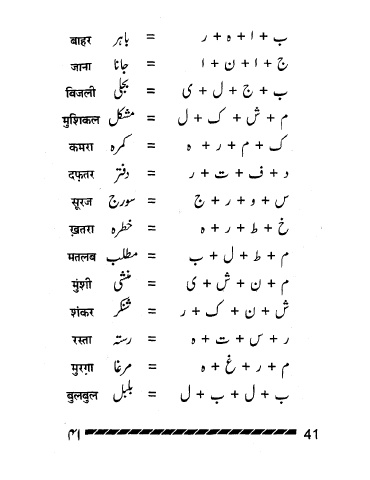 ب + ا + ہ + ر = باہر बाहर
ج + ا + ن + ا = جانا जाना
ب + ج + ل + ی = بجلی बिजली
م + ش + ک + ل = مشکل मुशिकल
ک + م + ر + ہ = کمرہ कमरा
د + ف + ت + ر = دفتر दफ़तर
س + و + ر + ج = سورج सूरज
خ + ط + ر + ہ = خطرہ ख़तरा
م + ط + ل + ب = مطلب मतलब
م + ن + ش + ی = منشی मुंशी
ش + ن + ک + ر = شنکر शंकर
ر + س + ت + ہ = رستہ रस्ता
م + ر + غ + ہ = مرغا मुरग़ा
ب + ل + ب + ل = بلبل बुलबुल
۴۱ 41